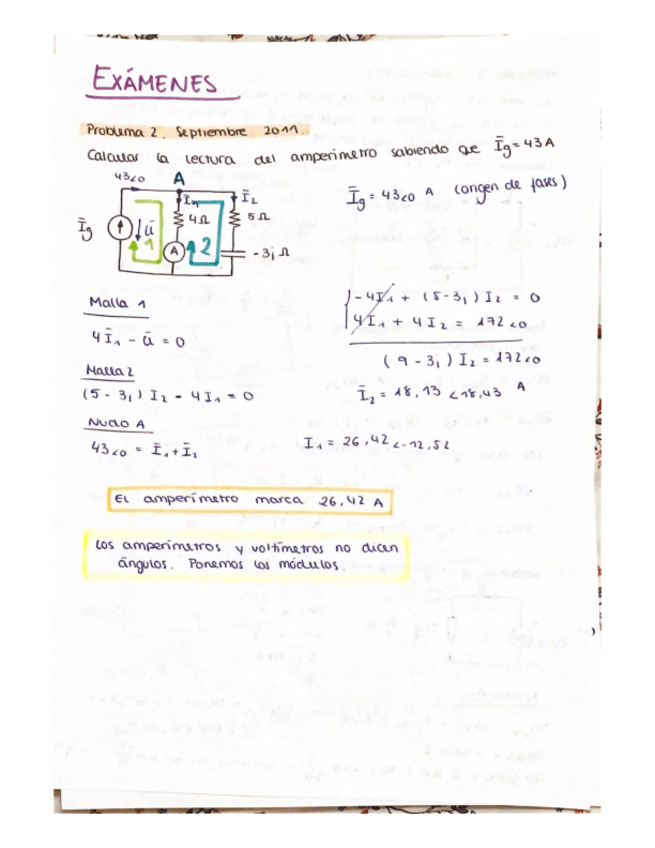 EXÁMENES
Problema 2. Septiembre 2011.
Calcular la lectura del amperímetro sabiendo que Īg = 43 A
43∠0 A
Īg = 43∠0 A (origen de fases)
I₁ Ī₂
4Ω 5Ω
Īg ū 1 A 2 -3j Ω
Malla 1
4Ī₁ - ū = 0
Malla 2
(5 - 3j) I₂ - 4I₁ = 0
Nudo A
43∠0 = Ī₁ + Ī₂
-4I₁ + (5-3j) I₂ = 0
4I₁ + 4I₂ = 172∠0
(9 - 3j) I₂ = 172∠0
Ī₂ = 18,13 ∠18,43 A
I₁ = 26,42 ∠-12,52
El amperímetro marca 26,42 A
Los amperímetros y voltímetros no dicen
ángulos. Ponemos los módulos.